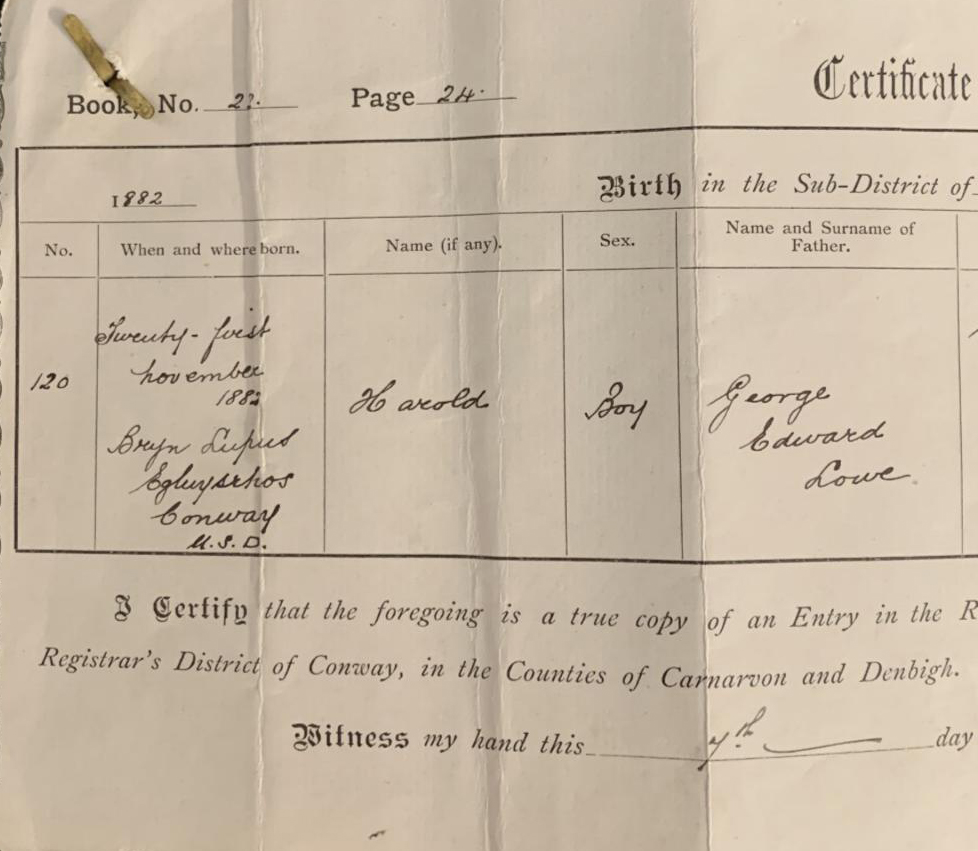 Book, No. 22. Page 24.
Certificate
1882
Birth in the Sub-District of
No. When and where born. Name (if any). Sex. Name and Surname of Father.
120 Twenty-first november 1882 Bryn Lupus Egluysrhos Conway U.S.D. Harold Boy George Edward Lowe
I Certify that the foregoing is a true copy of an Entry in the R
Registrar's District of Conway, in the Counties of Carnarvon and Denbigh.
Witness my hand this 7th day